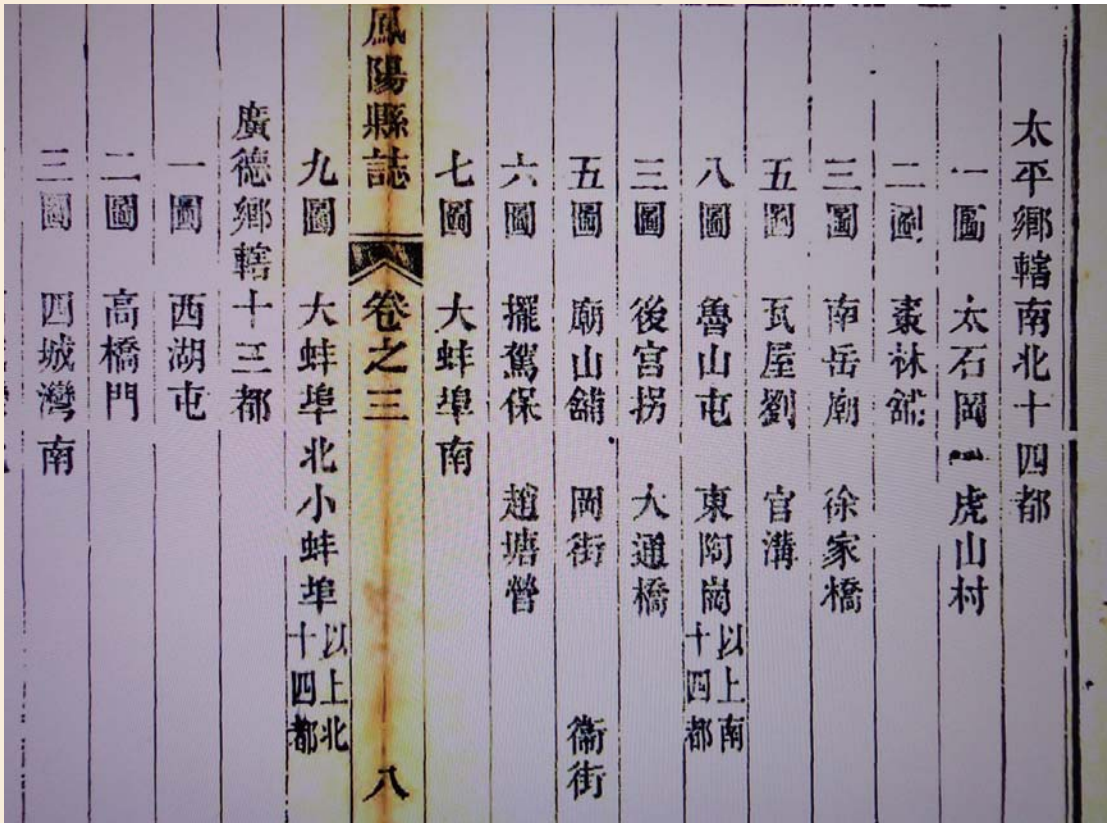 太平鄉轄南北十四都
一圖 太石岡 虎山村
二圖 棗林舖
三圖 南岳廟 徐家橋
五圖 瓦屋劉 官溝
八圖 魯山屯 東阿崗 以上南十四都
三圖 後宮拐 大通橋
五圖 廟山舖 岡街 衞街
六圖 擺駕保 趙塘營
七圖 大蚌埠南
鳳陽縣誌 卷之三 八
九圖 大蚌埠北小蚌埠 以上北十四都
廣德鄉轄十三都
一圖 西湖屯
二圖 高橋門
三圖 四城灣南